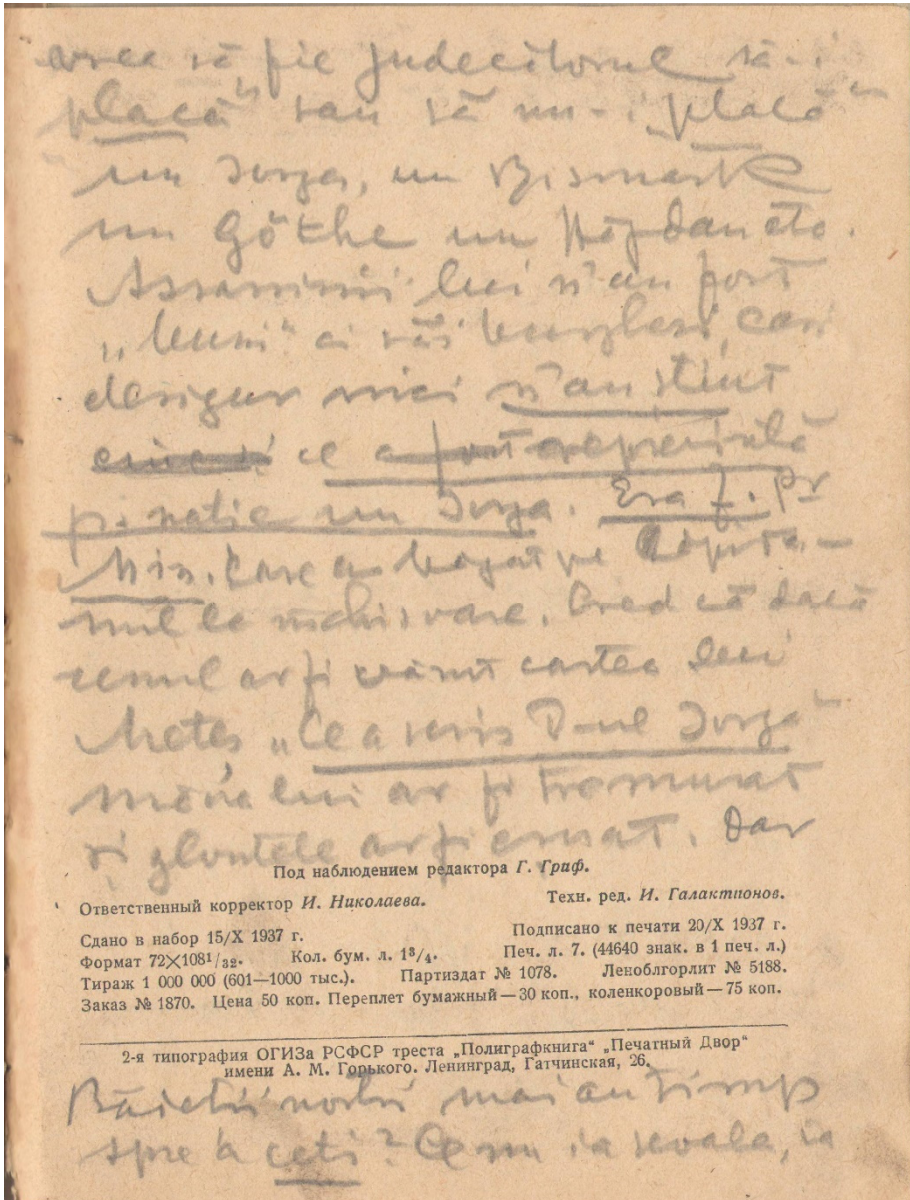 avea să fie judecătorul să-i
placă" sau să nu-i „placă"
un Iorga, un Bismark
un Göthe un Hôjdau etc.
Assasinii lui n'au fost
„buni" ai săi burghesi, cari
desigur nici n'au știut
ce a reprezintă
p. natie un Iorga. Era f. pr
Min. care a bagat pe Capita-
nul la inchisoare. Cred că dacă
unul ar fi văzut cartea lui
Metes „Ce a scris D-nul Iorga"
mâna lui ar fi tremurat
și glontele ar fi cruțat. Dar
Под наблюдением редактора Г. Граф.
Ответственный корректор И. Николаева. Техн. ред. И. Галактионов.
Сдано в набор 15/X 1937 г. Подписано к печати 20/X 1937 г.
Формат 72×108¹/₃₂. Кол. бум. л. 1³/₄. Печ. л. 7. (44640 знак. в 1 печ. л.)
Тираж 1 000 000 (601—1000 тыс.). Партиздат № 1078. Леноблгорлит № 5188.
Заказ № 1870. Цена 50 коп. Переплет бумажный—30 коп., коленкоровый—75 коп.
2-я типография ОГИЗа РСФСР треста „Полиграфкнига" „Печатный Двор"
имени А. М. Горького. Ленинград, Гатчинская, 26.
Băietii nostri mai au timp
spre a ceti? Cum ia scoala, ia